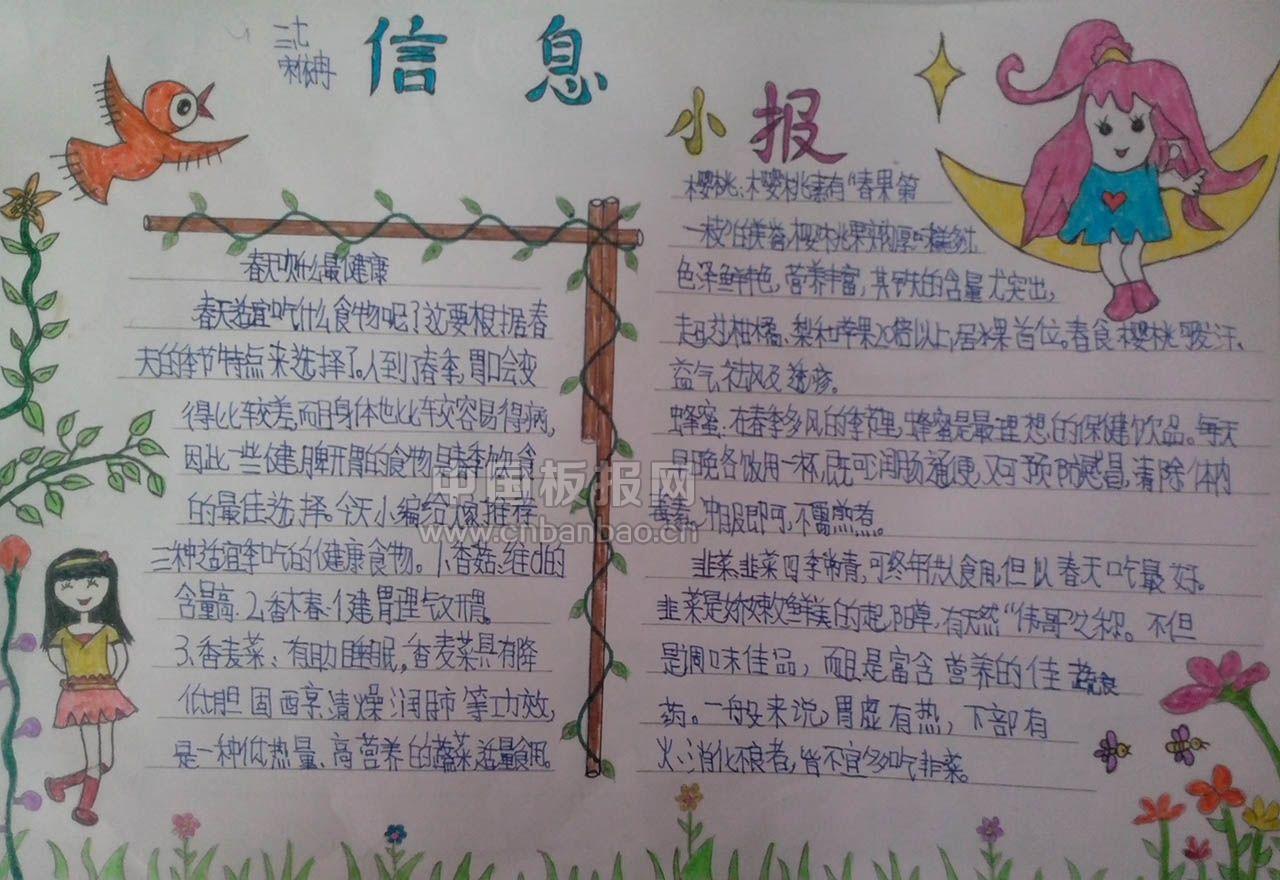 三七
信息
小报
春天吃什么最健康
春天适宜吃什么食物呢？这要根据春
天的季节特点来选择了。人到了春季，胃口会变
得比较差，而且身体也比较容易得病，
因此一些健脾开胃的食物是春季饮食
的最佳选择。今天小编给大家推荐
三种适宜季吃的健康食物。1、香菇：维d的
含量高。2、香椿：健胃理气开胃。
3、香麦菜：有助睡眠，香麦菜具有降
低胆固醇、清燥润肺等功效，
是一种低热量、高营养的蔬菜，适量食用。
樱桃：樱桃素有“春果第
一枝”的美誉，樱桃果实肉厚味美多汁
色泽鲜艳，营养丰富，其铁的含量尤突出，
超过柑橘、梨和苹果20倍以上，居水果首位。春食樱桃可发汗、
益气、祛风及透疹。
蜂蜜：在春季多风的季节里，蜂蜜是最理想的保健饮品。每天
早晚各饮用一杯，既可润肠通便，又可预防感冒，清除体内
毒素。冲服即可，不需煎煮。
韭菜：韭菜四季常青，可终年供人食用，但以春天吃最好。
韭菜是娇嫩鲜美的起阳草，有天然“伟哥”之称。不但
是调味佳品，而且是富含营养的佳蔬良
药。一般来说，胃虚有热，下部有
火，消化不良者，皆不宜多吃韭菜。
中国板报网
www.cnbanbao.cn